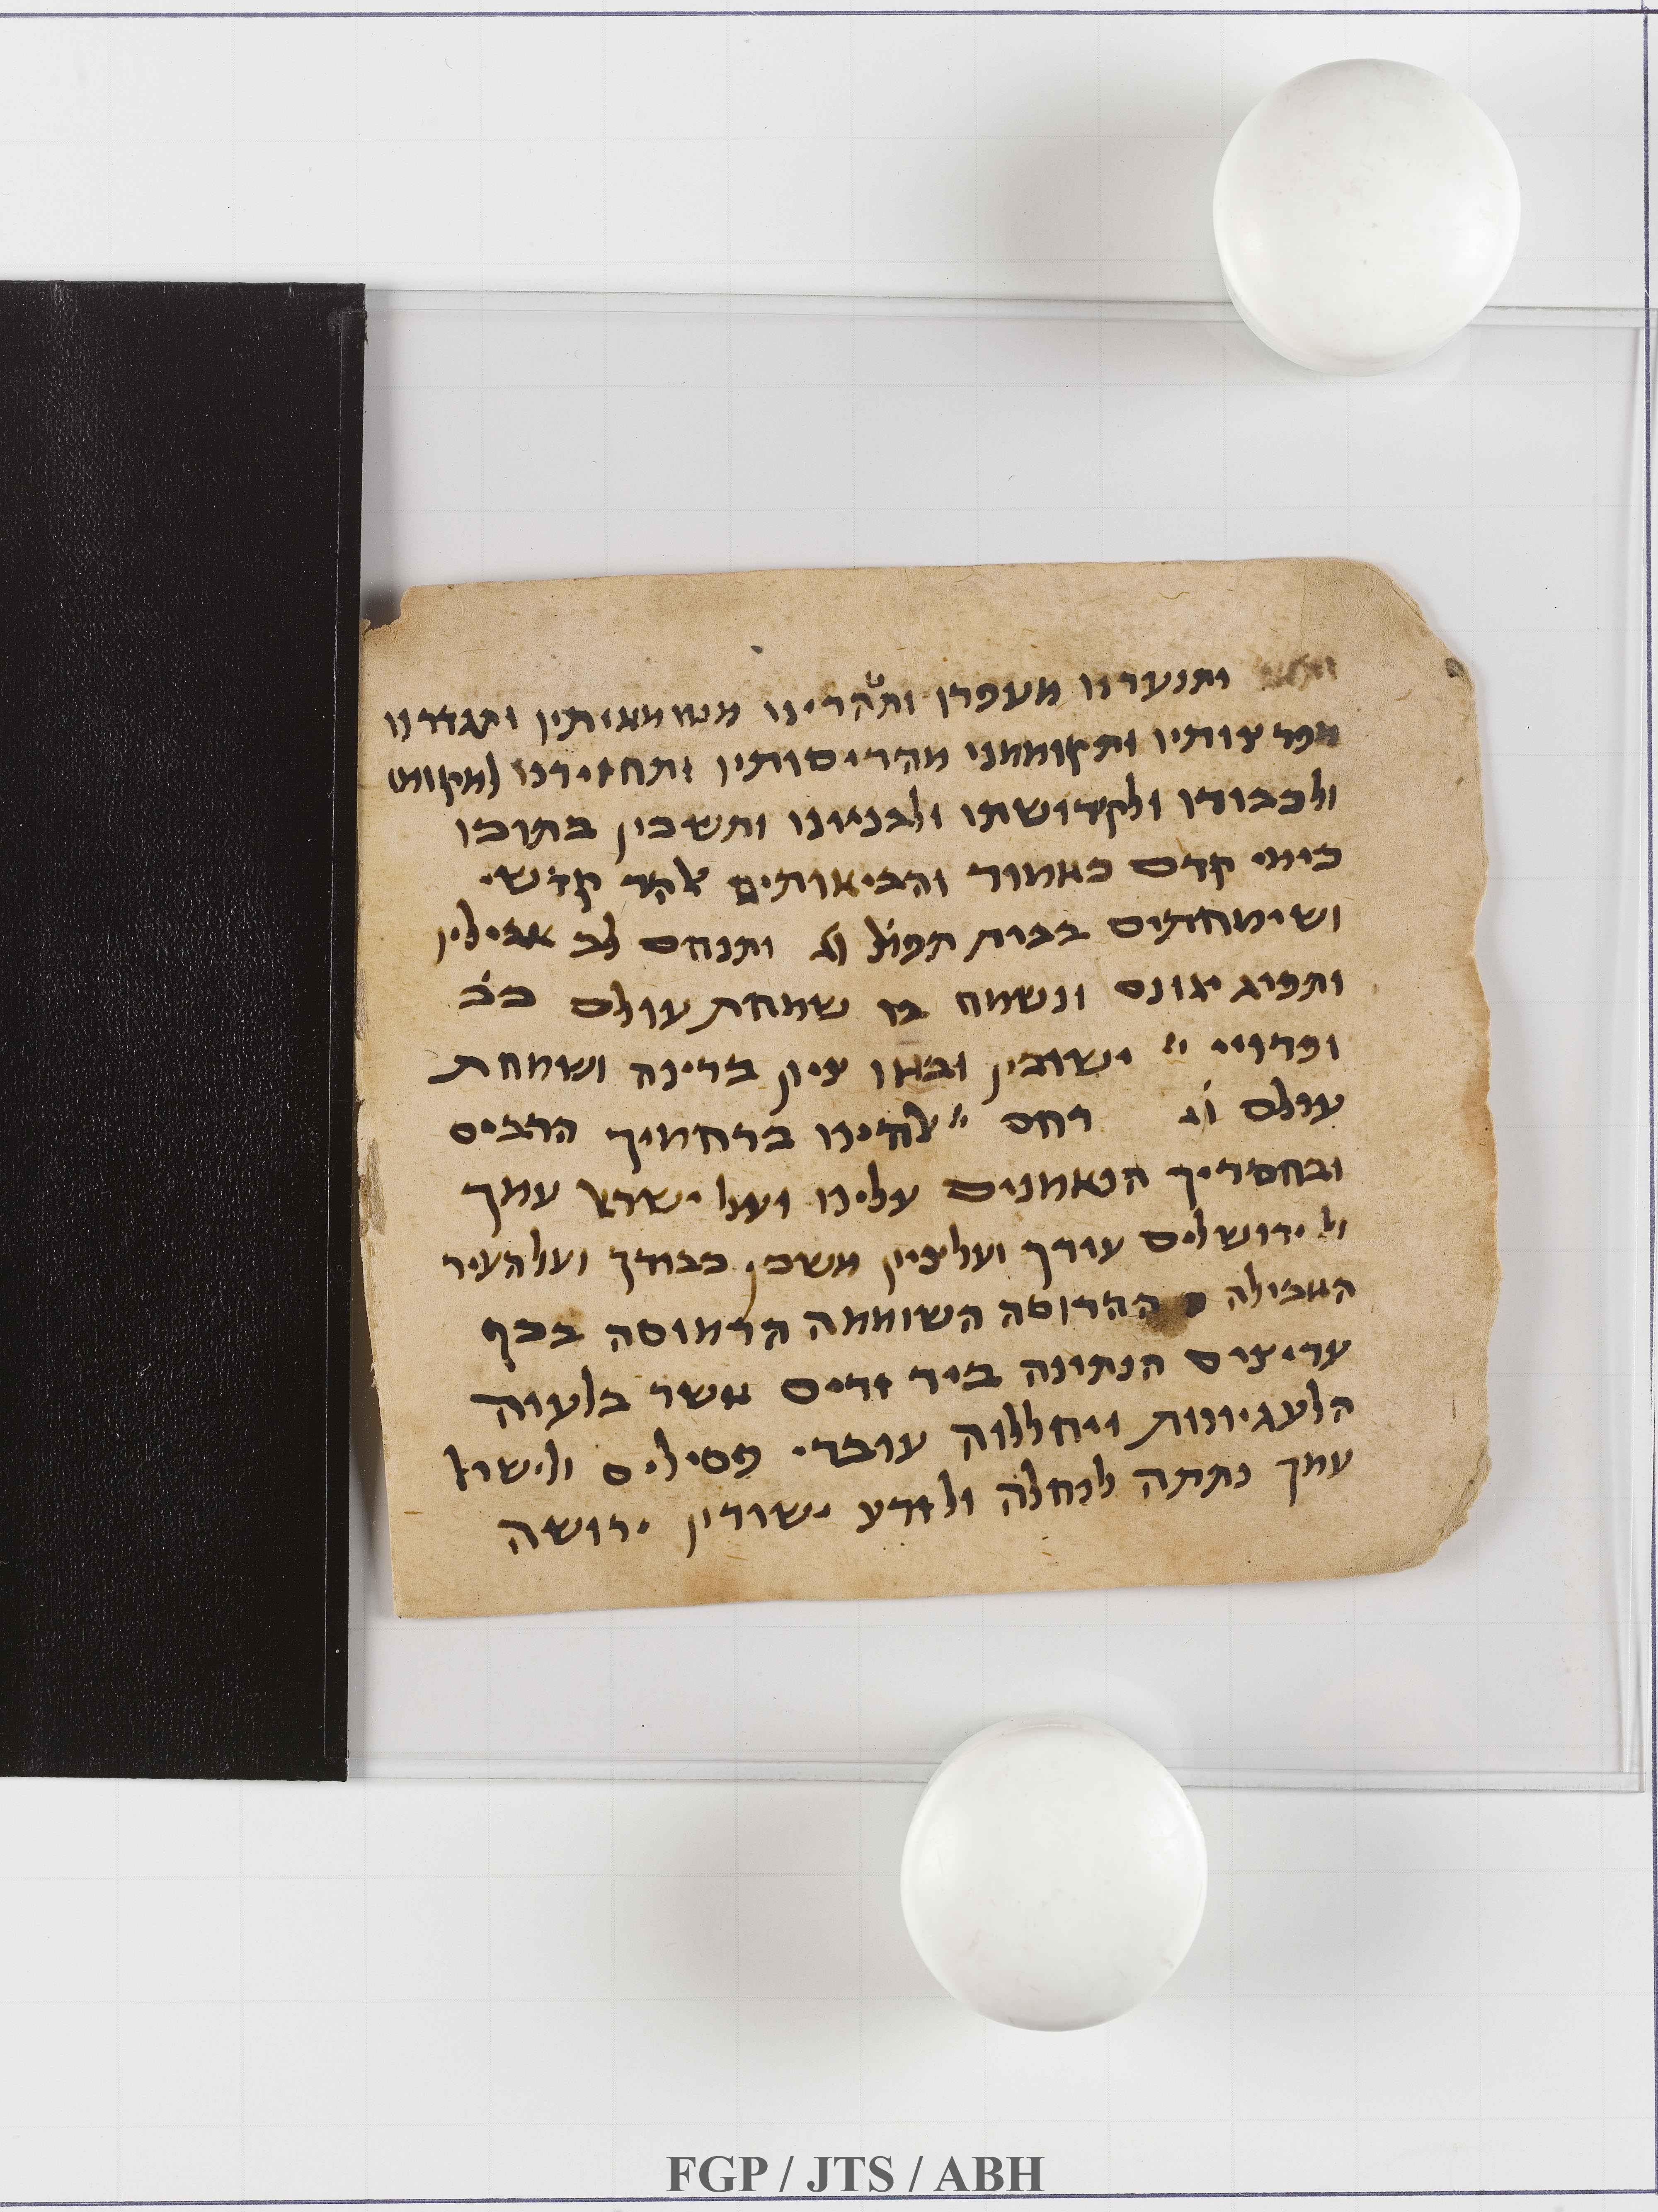 ותנערנו מעפרו ותטהרינו מטומאיתיו ותגדרנו
מפרצותיו ותקוממנו מהריסותיו ותחזירנו למקומו
ולכבודו ולקדושתו ולבניונו ותשכין בתוכו
כימי קדם כאמור והביאותים אל הר קדשי
ושימחתים בבית תפיל וג ותנחם לב אביליו
ותפיג יגונם ונשמח בו שמחת עולם ככ
ופדויי יי ישובון ובאו ציון ברינה ושמחת
עולם וג רחם יי אלהינו ברחמיך הרבים
ובחסדיך הנאמנים עלינו ועל ישראל עמך
ועל ירושלים עירך ועל ציון משכן כבודך ועל העיר
האבילה ההרוסה השוממה הרמוסה בכף
עריצים הנתונה ביד זרים אשר בלעוה
הלעגיונות ויחללוה עובדי פסילים ולישראל
עמך נתתה לנחלה ולזרע ישורון ירושה
FGP / JTS / ABH